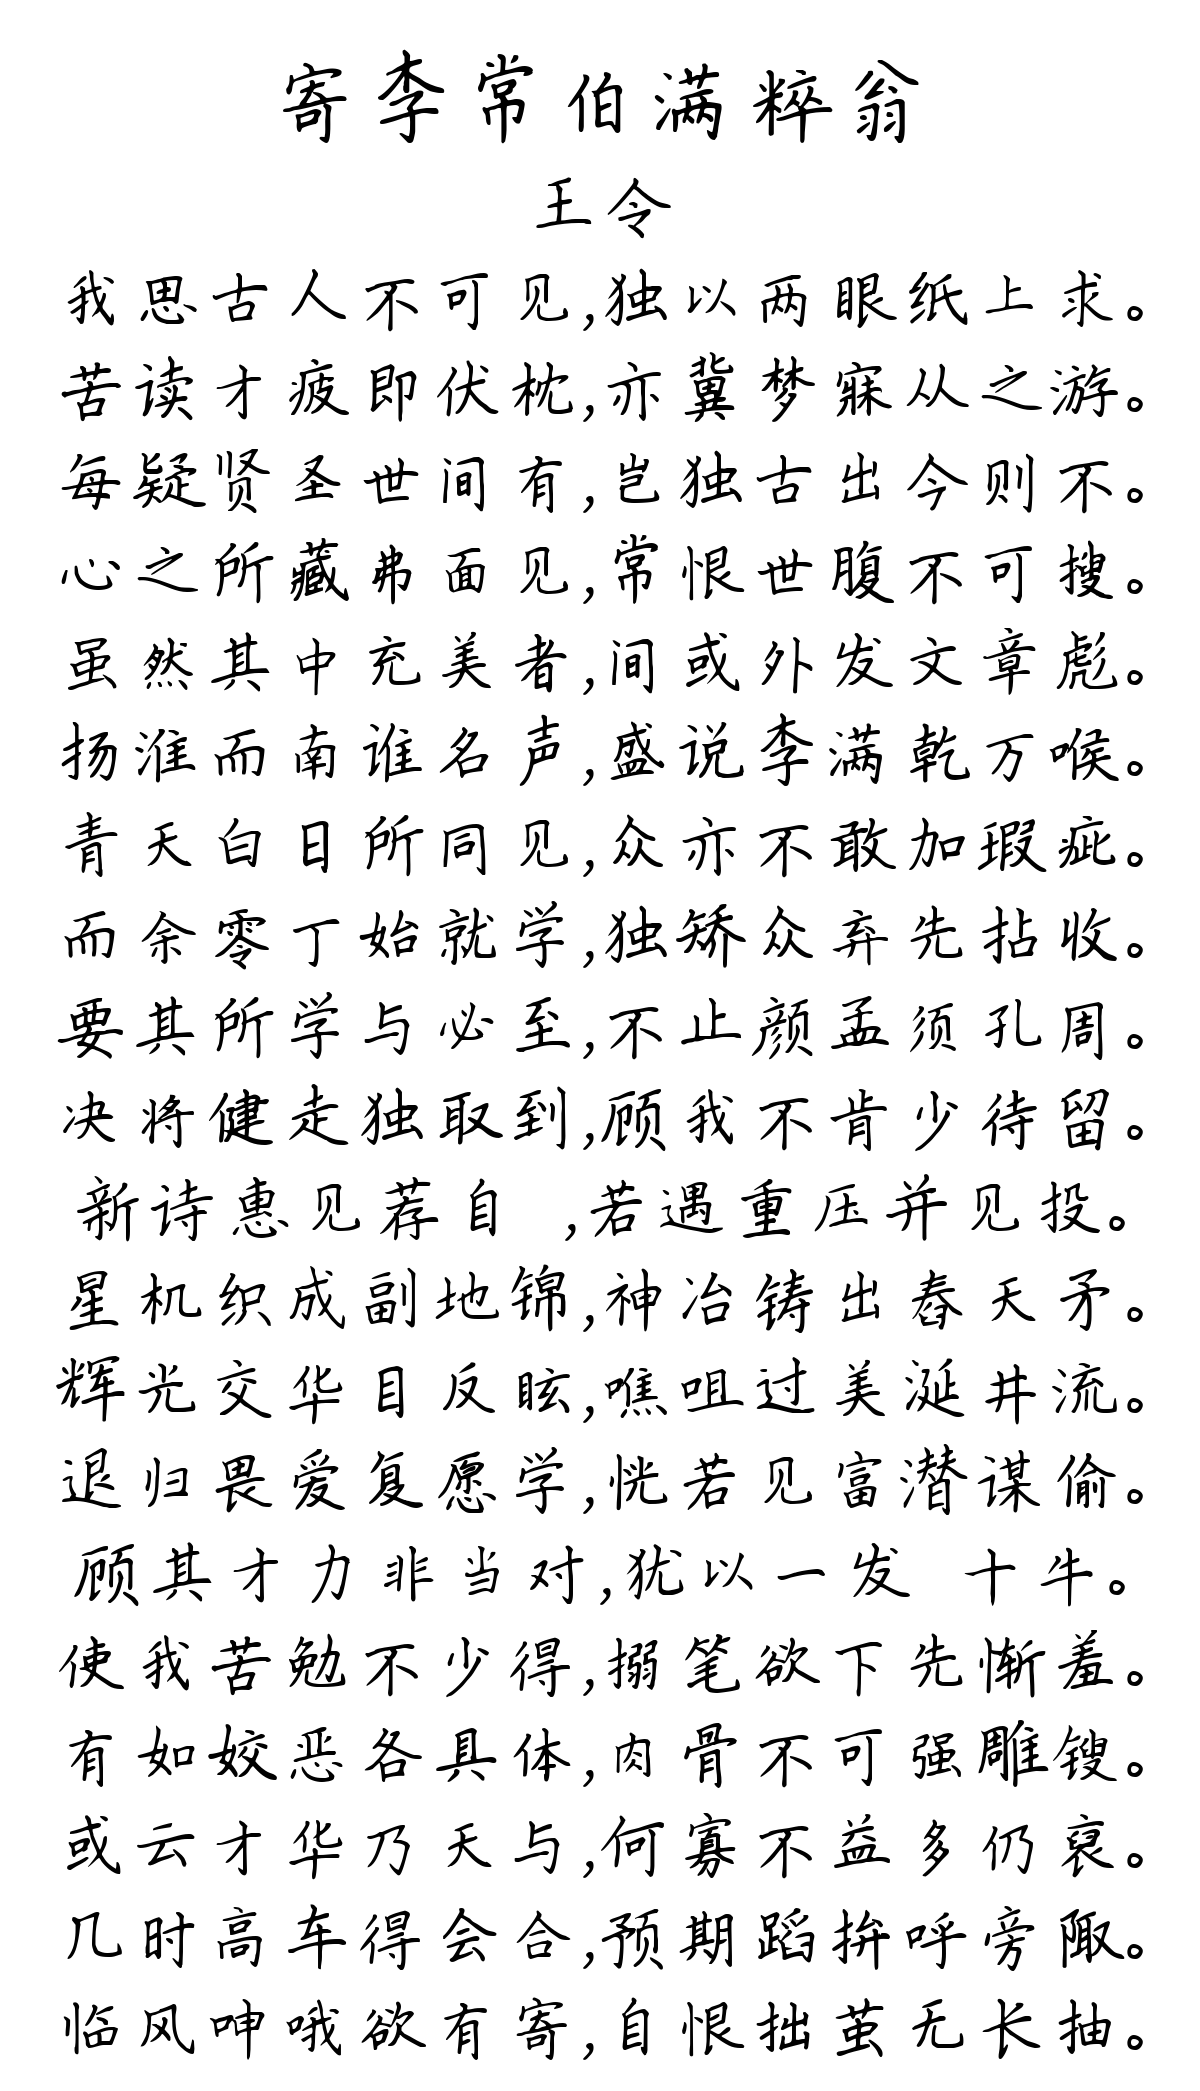 寄李常伯满粹翁
王令
我思古人不可见,独以两眼纸上求。
苦读才疲即伏枕,亦冀梦寐从之游。
每疑贤圣世间有,岂独古出今则不。
心之所藏弗面见,常恨世腹不可搜。
虽然其中充美者,间或外发文章彪。
扬淮而南谁名声,盛说李满乾万喉。
青天白日所同见,众亦不敢加瑕疵。
而余零丁始就学,独矫众弃先拈收。
要其所学与必至,不止颜孟须孔周。
决将健走独取到,顾我不肯少待留。
新诗惠见荐自 ,若遇重压并见投。
星机织成副地锦,神冶铸出舂天矛。
辉光交华目反眩,噍咀过美涎井流。
退归畏爱复愿学,恍若见富潜谋偷。
顾其才力非当对,犹以一发 十牛。
使我苦勉不少得,搦笔欲下先惭羞。
有如姣恶各具体,肉骨不可强雕锼。
或云才华乃天与,何寡不益多仍裒。
几时高车得会合,预期蹈拚呼旁陬。
临风呻哦欲有寄,自恨拙茧无长抽。